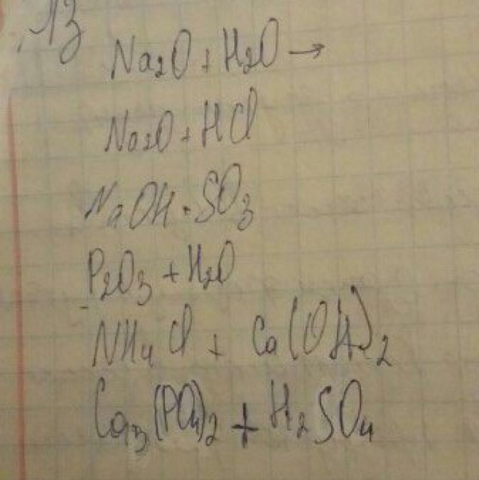 ДЗ
Na2O + H2O →
Na2O + HCl
NaOH + SO3
P2O3 + H2O
NH4Cl + Ca(OH)2
Ca3(PO4)2 + H2SO4